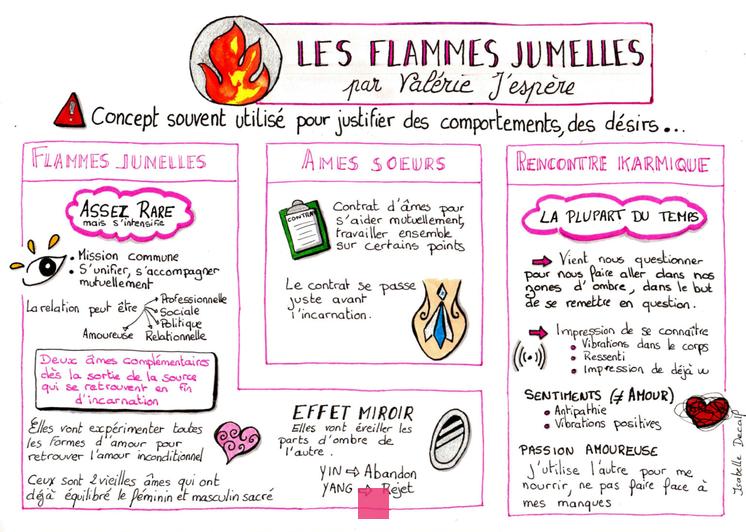 LES FLAMMES JUMELLES
par Valérie J'espère
Concept souvent utilisé pour justifier des comportements, des désirs...
FLAMMES JUMELLES
ASSEZ RARE
mais s'intensifie
• Mission commune
• S'unifier, s'accompagner
mutuellement
La relation peut être
Professionnelle
Sociale
Politique
Relationnelle
Amoureuse
Deux âmes complémentaires
dès la sortie de la source
qui se retrouvent en fin
d'incarnation
Elles vont expérimenter toutes
les formes d'amour pour
retrouver l'amour inconditionnel
Ceux sont 2 vieilles âmes qui ont
déjà équilibré le féminin et masculin sacré
EFFET MIROIR
Elles vont éveiller les
parts d'ombre de
l'autre.
YIN ⇨ Abandon
YANG ⇨ Rejet
AMES SOEURS
CONTRAT
Contrat d'âmes pour
s'aider mutuellement,
travailler ensemble
sur certains points
Le contrat se passe
juste avant
l'incarnation.
RENCONTRE KARMIQUE
LA PLUPART DU TEMPS
Vient nous questionner
pour nous faire aller dans nos
zones d'ombre, dans le but
de se remettre en question.
Impression de se connaître
• Vibrations dans le corps
• Ressenti
• Impression de déjà vu
SENTIMENTS (≠ AMOUR)
• Antipathie
• Vibrations positives
PASSION AMOUREUSE
J'utilise l'autre pour me
nourrir, ne pas faire face à
mes manques
Isabelle